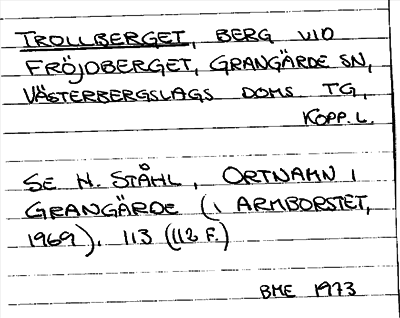 TROLLBERGET, BERG VID
FRÖJDBERGET, GRANGÄRDE SN,
VÄSTERBERGSLAGS DOMS. TG,
KOPP. L.
SE H. STÅHL, ORTNAMN I
GRANGÄRDE (I ARMBORSTET,
1969), 113 (112 F.)
BME 1973